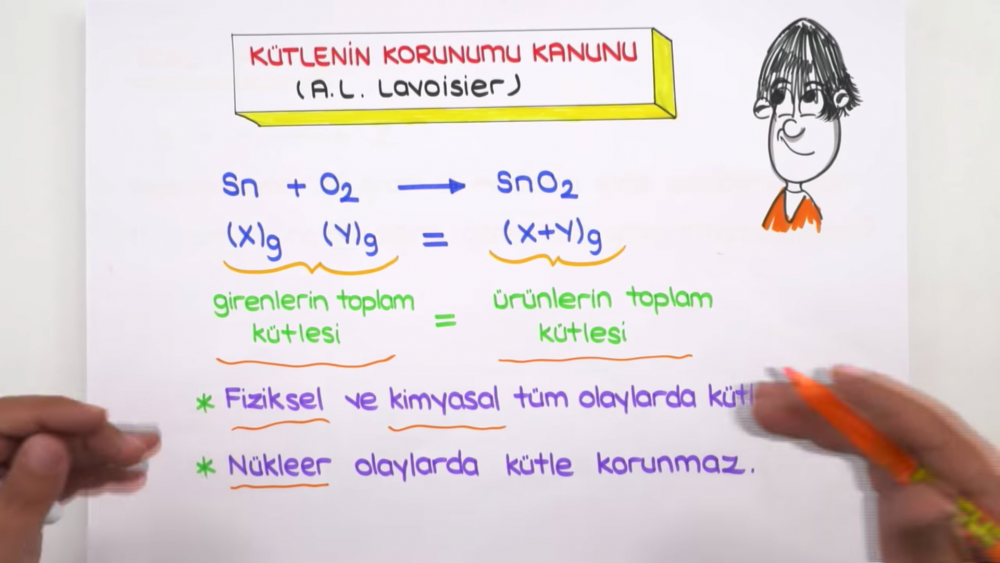 KÜTLENİN KORUNUMU KANUNU
(A.L. Lavoisier)
Sn + O₂ → SnO₂
(X)g (Y)g = (X+Y)g
girenlerin toplam kütlesi = ürünlerin toplam kütlesi
* Fiziksel ve kimyasal tüm olaylarda
* Nükleer olaylarda kütle korunmaz.